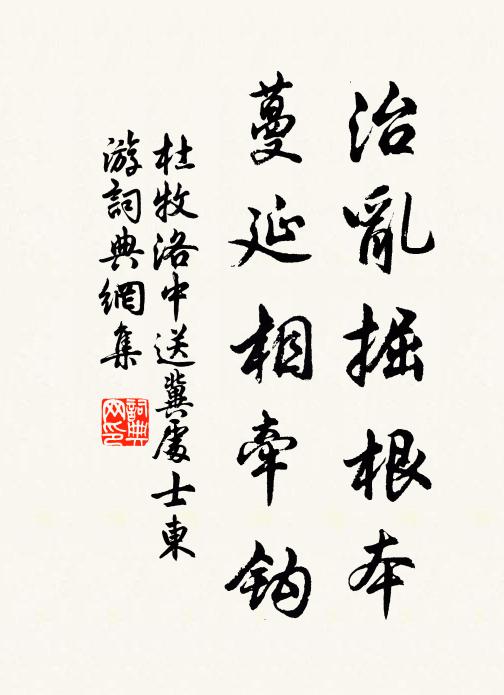 治亂掘根本
蔓延相牽鈎
杜牧洛中送冀處士東
游詞典網集
詞典
网印